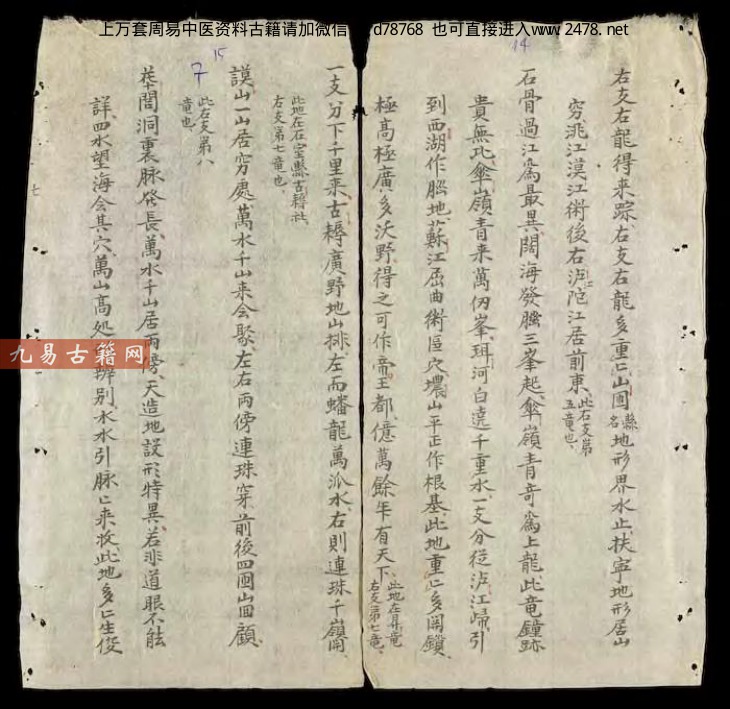 上万套周易中医资料古籍请加微信 d78768 也可直接进入www.2478.net
14
右支右龍得来踪、右支右龍多重〻、山圍縣名地形界水止、扶寧地形居山
穷、洮江漠江術後右、沪陀江居前東、此右支第五竜也、
石骨過江爲最異、闊海發腦三峯起、傘嶺青奇爲上龍、此竜鐘跡
貴無比、傘嶺青来萬仭峯、珥河白遶千重水、一支分從泸江歸、引
到西湖作腦地、蘇江屈曲術區穴、濃山平正作根基、此地重〻多開鎖、
極高極廣多沃野、得之可作帝王都、億萬餘年有天下、此地在昇竜右支第七竜、
15
一支分下千里来、古耨廣野地山排、左而蟠龍萬派水、右則連珠千嶺開、
此地在石室縣古耨社、右支第七竜也、
謨山一山居穷處、萬水千山来会聚、左右两傍連珠穿、前後四圍山囬顧、
7
此右支第八竜也、
間洞裏脉發長、萬水千山居两傍、天造地設形特異、若非道眼不能
詳、四水望海会其穴、萬山高処辨别、水水引脉〻来收、此地多〻生俊
九易古籍网